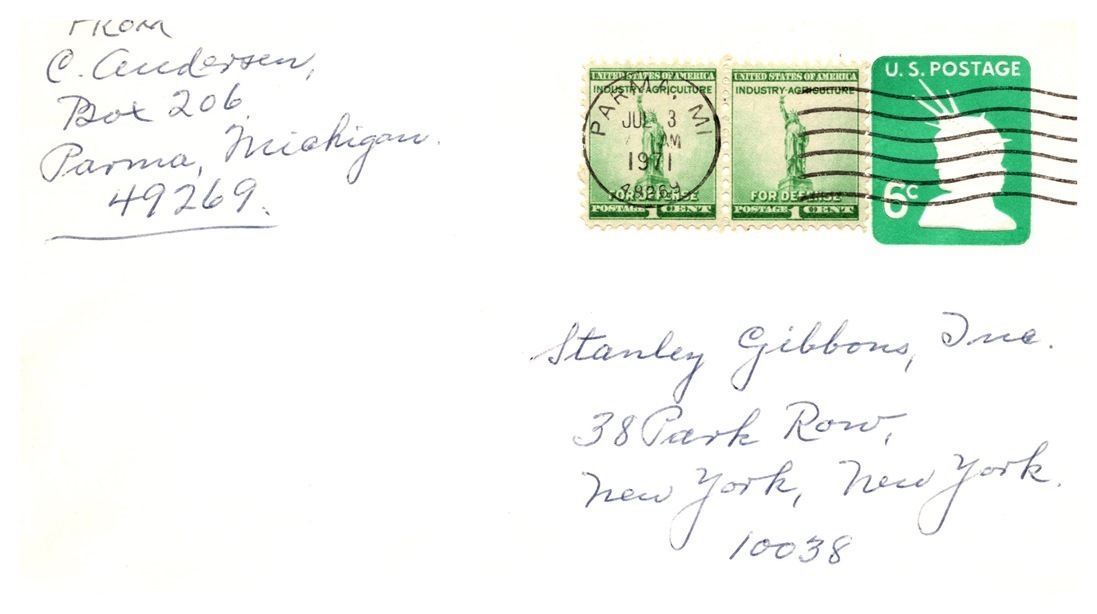 FROM
C. Andersen,
Box 206
Parma, Michigan.
49269.
UNITED STATES OF AMERICA
INDUSTRY·AGRICULTURE
FOR DEFENSE
POSTAGE 1 CENT
UNITED STATES OF AMERICA
INDUSTRY·AGRICULTURE
FOR DEFENSE
POSTAGE 1 CENT
PARMA, MI
JUL 3
AM
1971
49269
U.S. POSTAGE
6c
Stanley Gibbons, Inc.
38 Park Row,
New York, New York.
10038